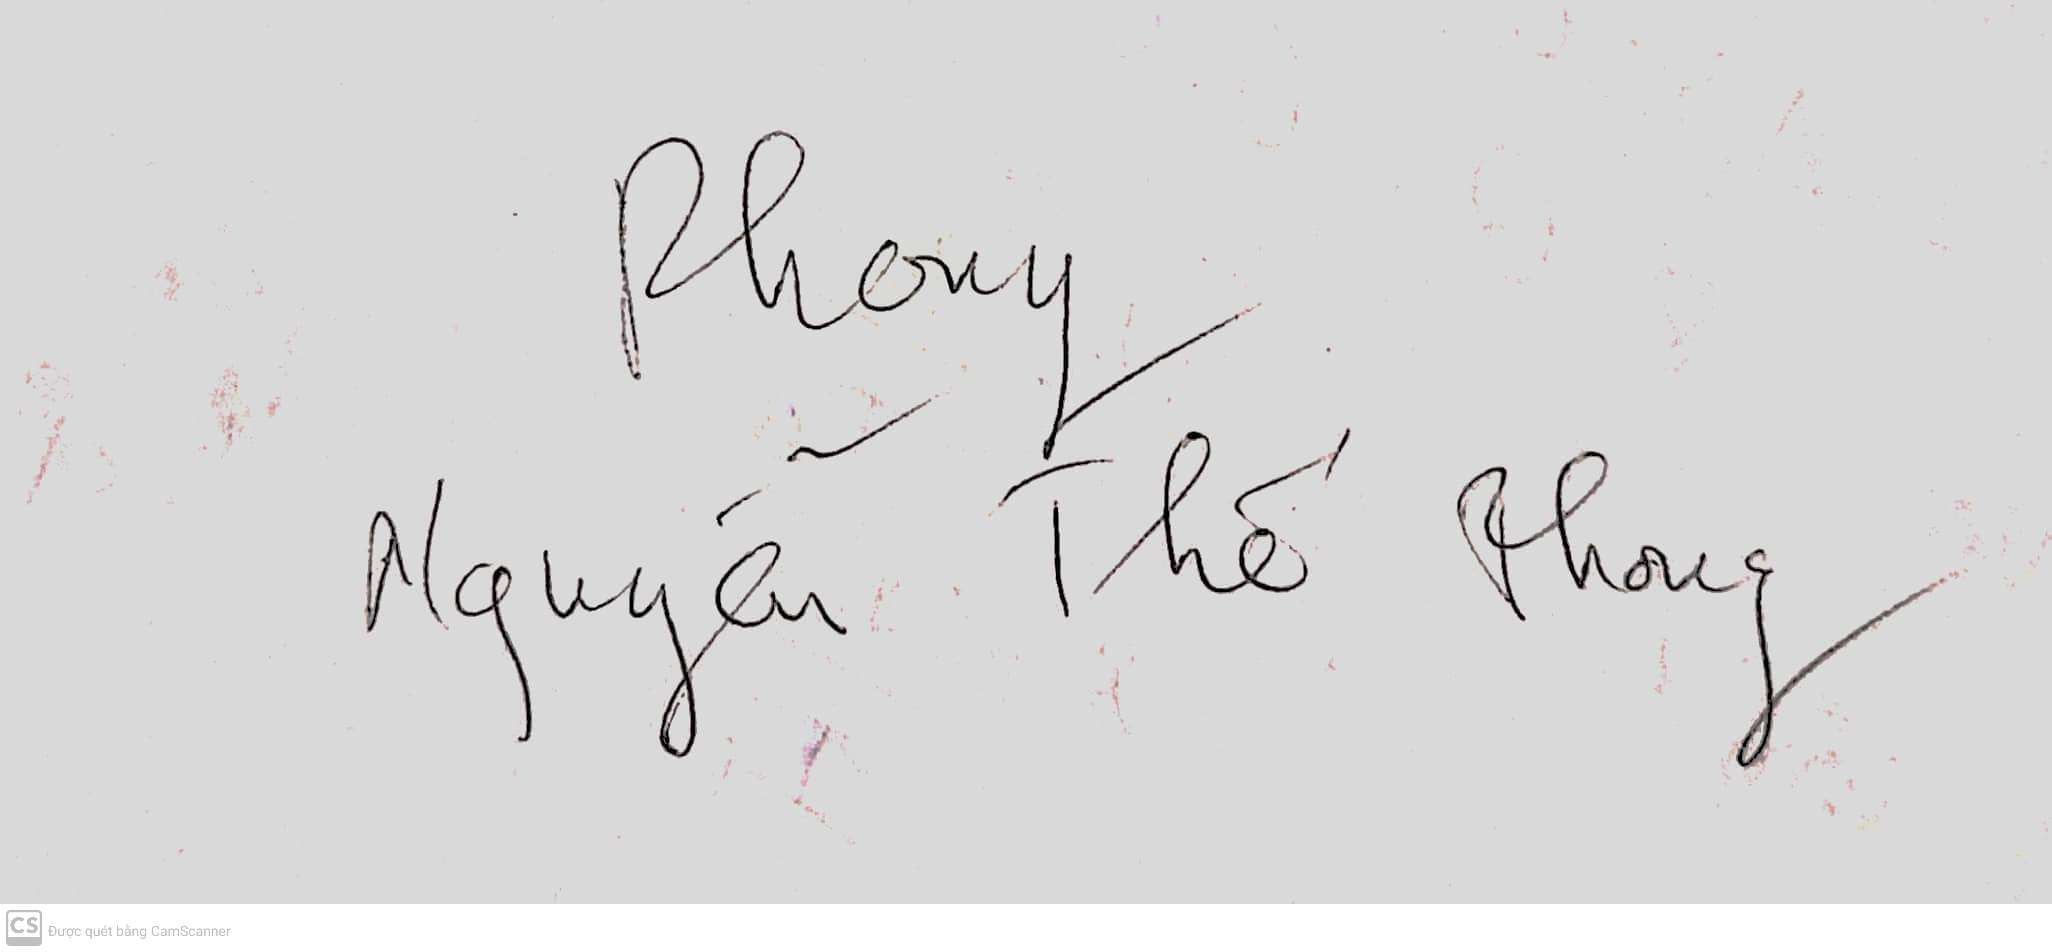 Phong
Nguyễn Thế Phong
CS Được quét bằng CamScanner